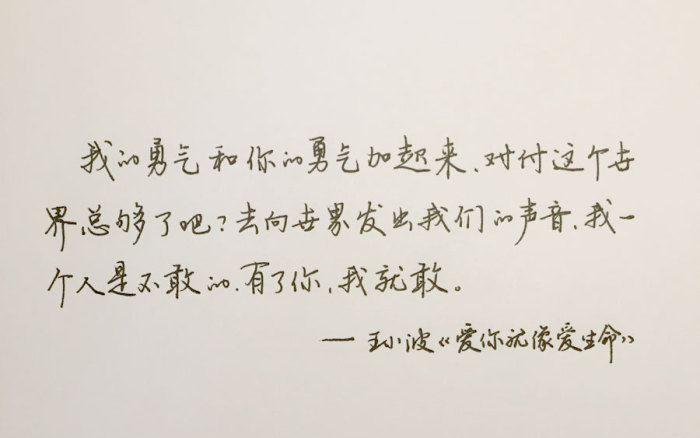 我的勇气和你的勇气加起来、对付这个世
界总够了吧?去向世界发出我们的声音、我一
个人是不敢的、有了你,我就敢。
— 王小波《爱你就像爱生命》